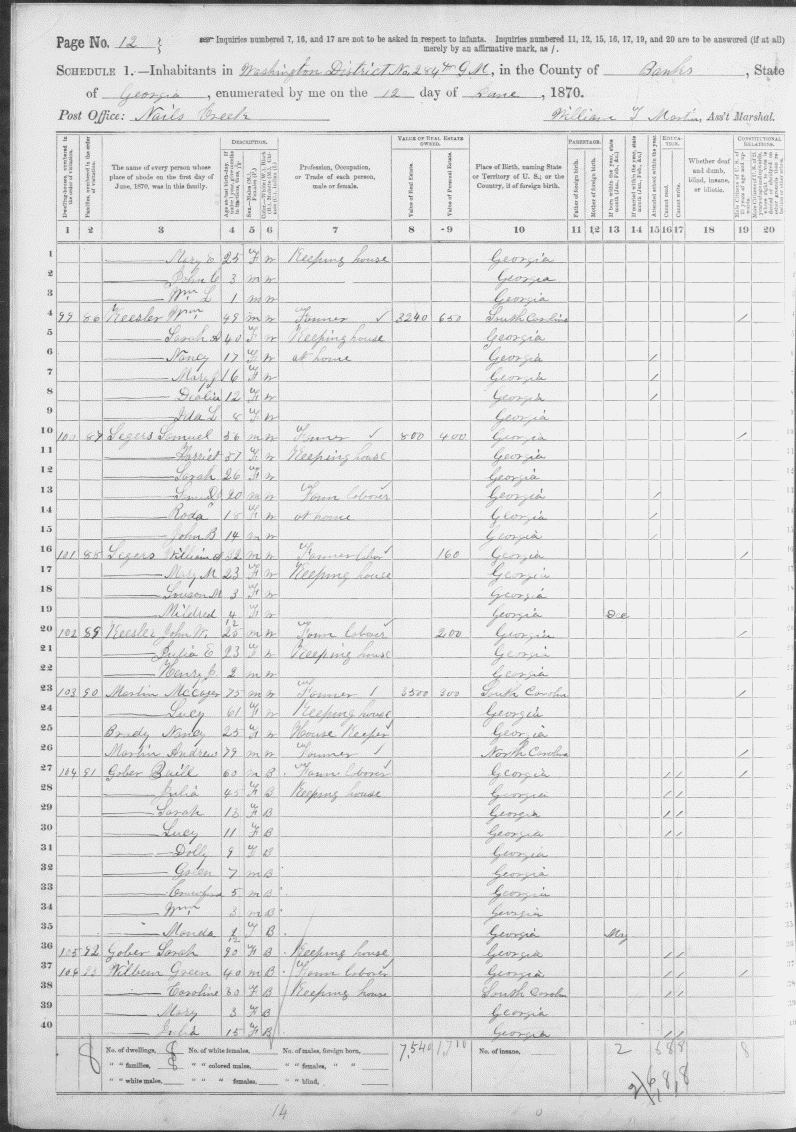 Page No. 12
Inquiries numbered 7, 16, and 17 are not to be asked in respect to infants. Inquiries numbered 11, 12, 15, 16, 17, 19, and 20 are to be answered (if at all)
merely by an affirmative mark, as /.
SCHEDULE 1.—Inhabitants in Washington District No. 284th G M, in the County of Banks, State
of Georgia, enumerated by me on the 12 day of June, 1870.
Post Office: Nails Creek William T Martin, Ass't Marshal.
DESCRIPTION. VALUE OF REAL ESTATE OWNED. PARENTAGE. EDUCATION. CONSTITUTIONAL RELATIONS.
Dwelling-houses, numbered in the order of visitation.
Families, numbered in the order of visitation.
The name of every person whose place of abode on the first day of June, 1870, was in this family.
Profession, Occupation, or Trade of each person, male or female.
Value of Real Estate.
Value of Personal Estate.
Place of Birth, naming State or Territory of U. S.; or the Country, if of foreign birth.
Father of foreign birth.
Mother of foreign birth.
Attended school within the year.
Cannot read.
Cannot write.
Whether deaf and dumb, blind, insane, or idiotic.
1 2 3 4 5 6 7 8 9 10 11 12 13 14 15 16 17 18 19 20
1 Mary E 25 F W Keeping house Georgia
2 John C 3 m W Georgia
3 Wm L 1 m W Georgia
4 99 86 Keesler Wm 49 m W Farmer 3240 650 South Carolina /
5 Sarah A 40 F W Keeping house Georgia
6 Nancy 17 F W at home Georgia /
7 Mary J 16 F W Georgia /
8 12 F W Georgia /
9 Ida L 8 F W Georgia
10 100 87 Segers Samuel 56 m W Farmer 800 400 Georgia /
11 Harriet 51 F W Keeping house Georgia
12 Sarah 26 F W Georgia
13 20 m W Farm labour Georgia /
14 Roda 18 F W at home Georgia /
15 John B 14 m W Georgia /
16 101 88 Segers William 32 m W Farmer labor 160 Georgia /
17 Mary M 23 F W Keeping house Georgia
18 3 F W Georgia
19 Mildred 4/12 F W Georgia Dec
20 102 89 Keesler John W. 25 m W Farm labour 200 Georgia /
21 Julia E 23 F W Keeping house Georgia
22 Henry J. 2 m W Georgia
23 103 90 Martin 75 m W Farmer 3500 300 South Carolin /
24 Lucy 61 F W Keeping house Georgia
25 Brady Nancy 25 F W House Keeper Georgia
26 Martin Andrew 79 m W Farmer North Carolina /
27 104 91 Gober Quill 60 m B Farm laborer Georgia / / /
28 Julia 45 F B Keeping house Georgia / /
29 Sarah 13 F B Georgia / /
30 Lucy 11 F B Georgia / /
31 Dolly 9 F B Georgia
32 Green 7 m B Georgia
33 Crawford 5 m B Georgia
34 Wm 3 m B Georgia
35 Manda 1/12 F B Georgia May
36 105 92 Gober Sarah 90 F B Keeping house Georgia / /
37 106 93 Wilburn Green 40 m B Farm laborer Georgia / / /
38 Caroline 30 F B Keeping house South Carolin / /
39 Mary 3 F B Georgia
40 Julia 15 F B Georgia / /
8 No. of dwellings, 8 No. of white females, No. of males, foreign born, 7,540 1,710 No. of insane, 2 6 8 8 8
" " families, 8 " " colored males, " " females, " "
" " white males, " " " females, " " blind, 2/6,8,8
14